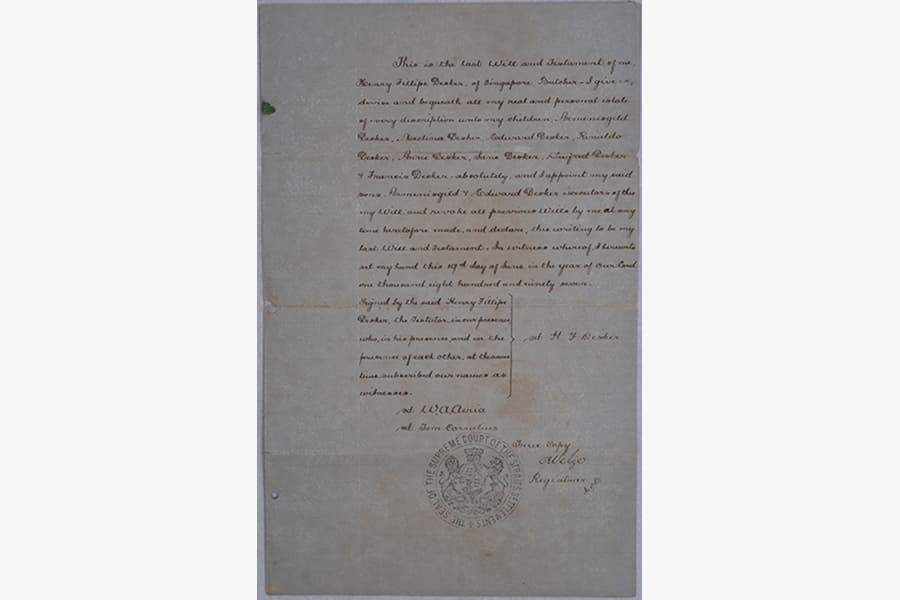 This is the last Will and Testament of me
Henry Fillipe Desker, of Singapore, Butcher - I give -
devise and bequeath all my real and personal estate
of every description unto my children, Armenisgild
Desker, Desker, Edward Desker, Rinaldo
Desker, Anne Desker, Jane Desker, Desker
& Francis Desker - absolutely, and I appoint my said
sons Armenisgild & Edward Desker executors of this
my Will, and revoke all previous Wills by me at any
time heretofore made, and declare, this writing to be my
last Will and Testament. In witness whereof, I hereunto
set my hand this 19th day of June in the year of Our Lord
one thousand eight hundred and ninety seven.
Signed by the said Henry Fillipe
Desker, the Testator, in our presence
who, in his presence, and in the
presence of each other, at the same
time, subscribed our names as
witnesses.
sd H F Desker
sd W. A. Aeria
sd Tom Cornelius
THE SEAL OF THE SUPREME COURT OF THE STRAITS SETTLEMENTS
True Copy
Registrar